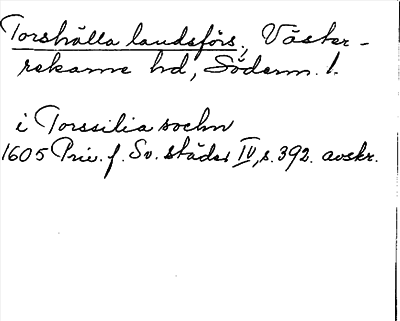 Torshälla landsförs., Väster-
rekarne hd, Söderm. l.
i Torssilia sochn
1605 Priv. f. Sv. städer IV, s. 392. avskr.